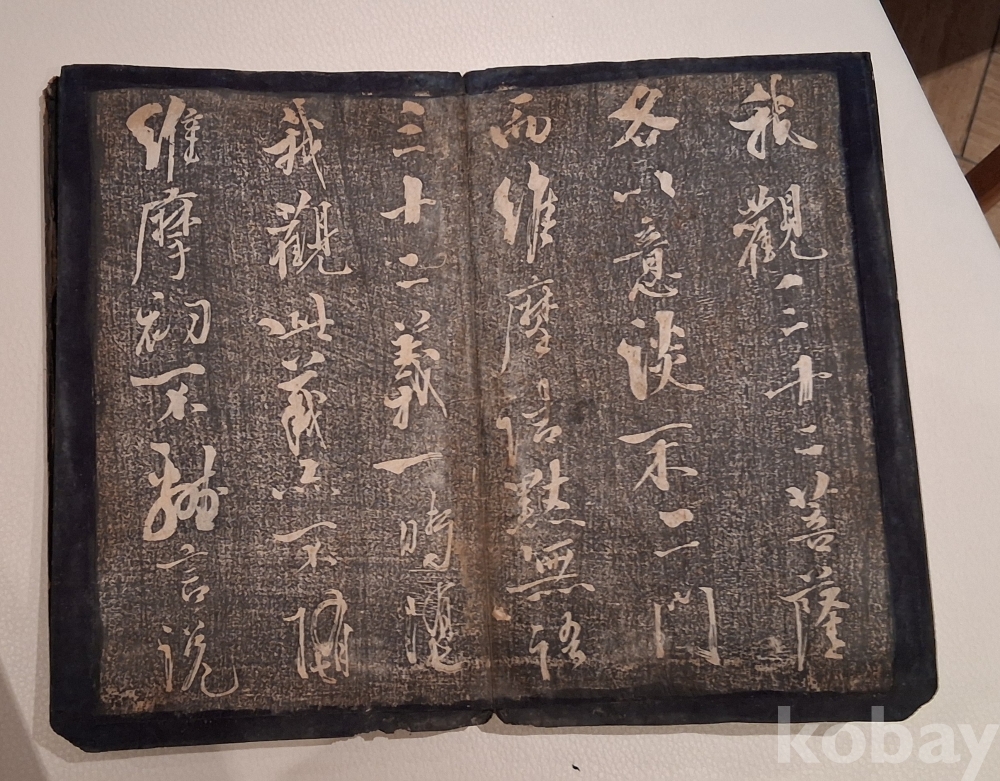 我觀三十二菩薩
各以意談不二門
而維摩詰默無語
三十二義一時墮
我觀此義亦不墮
維摩初不離言說
kobay